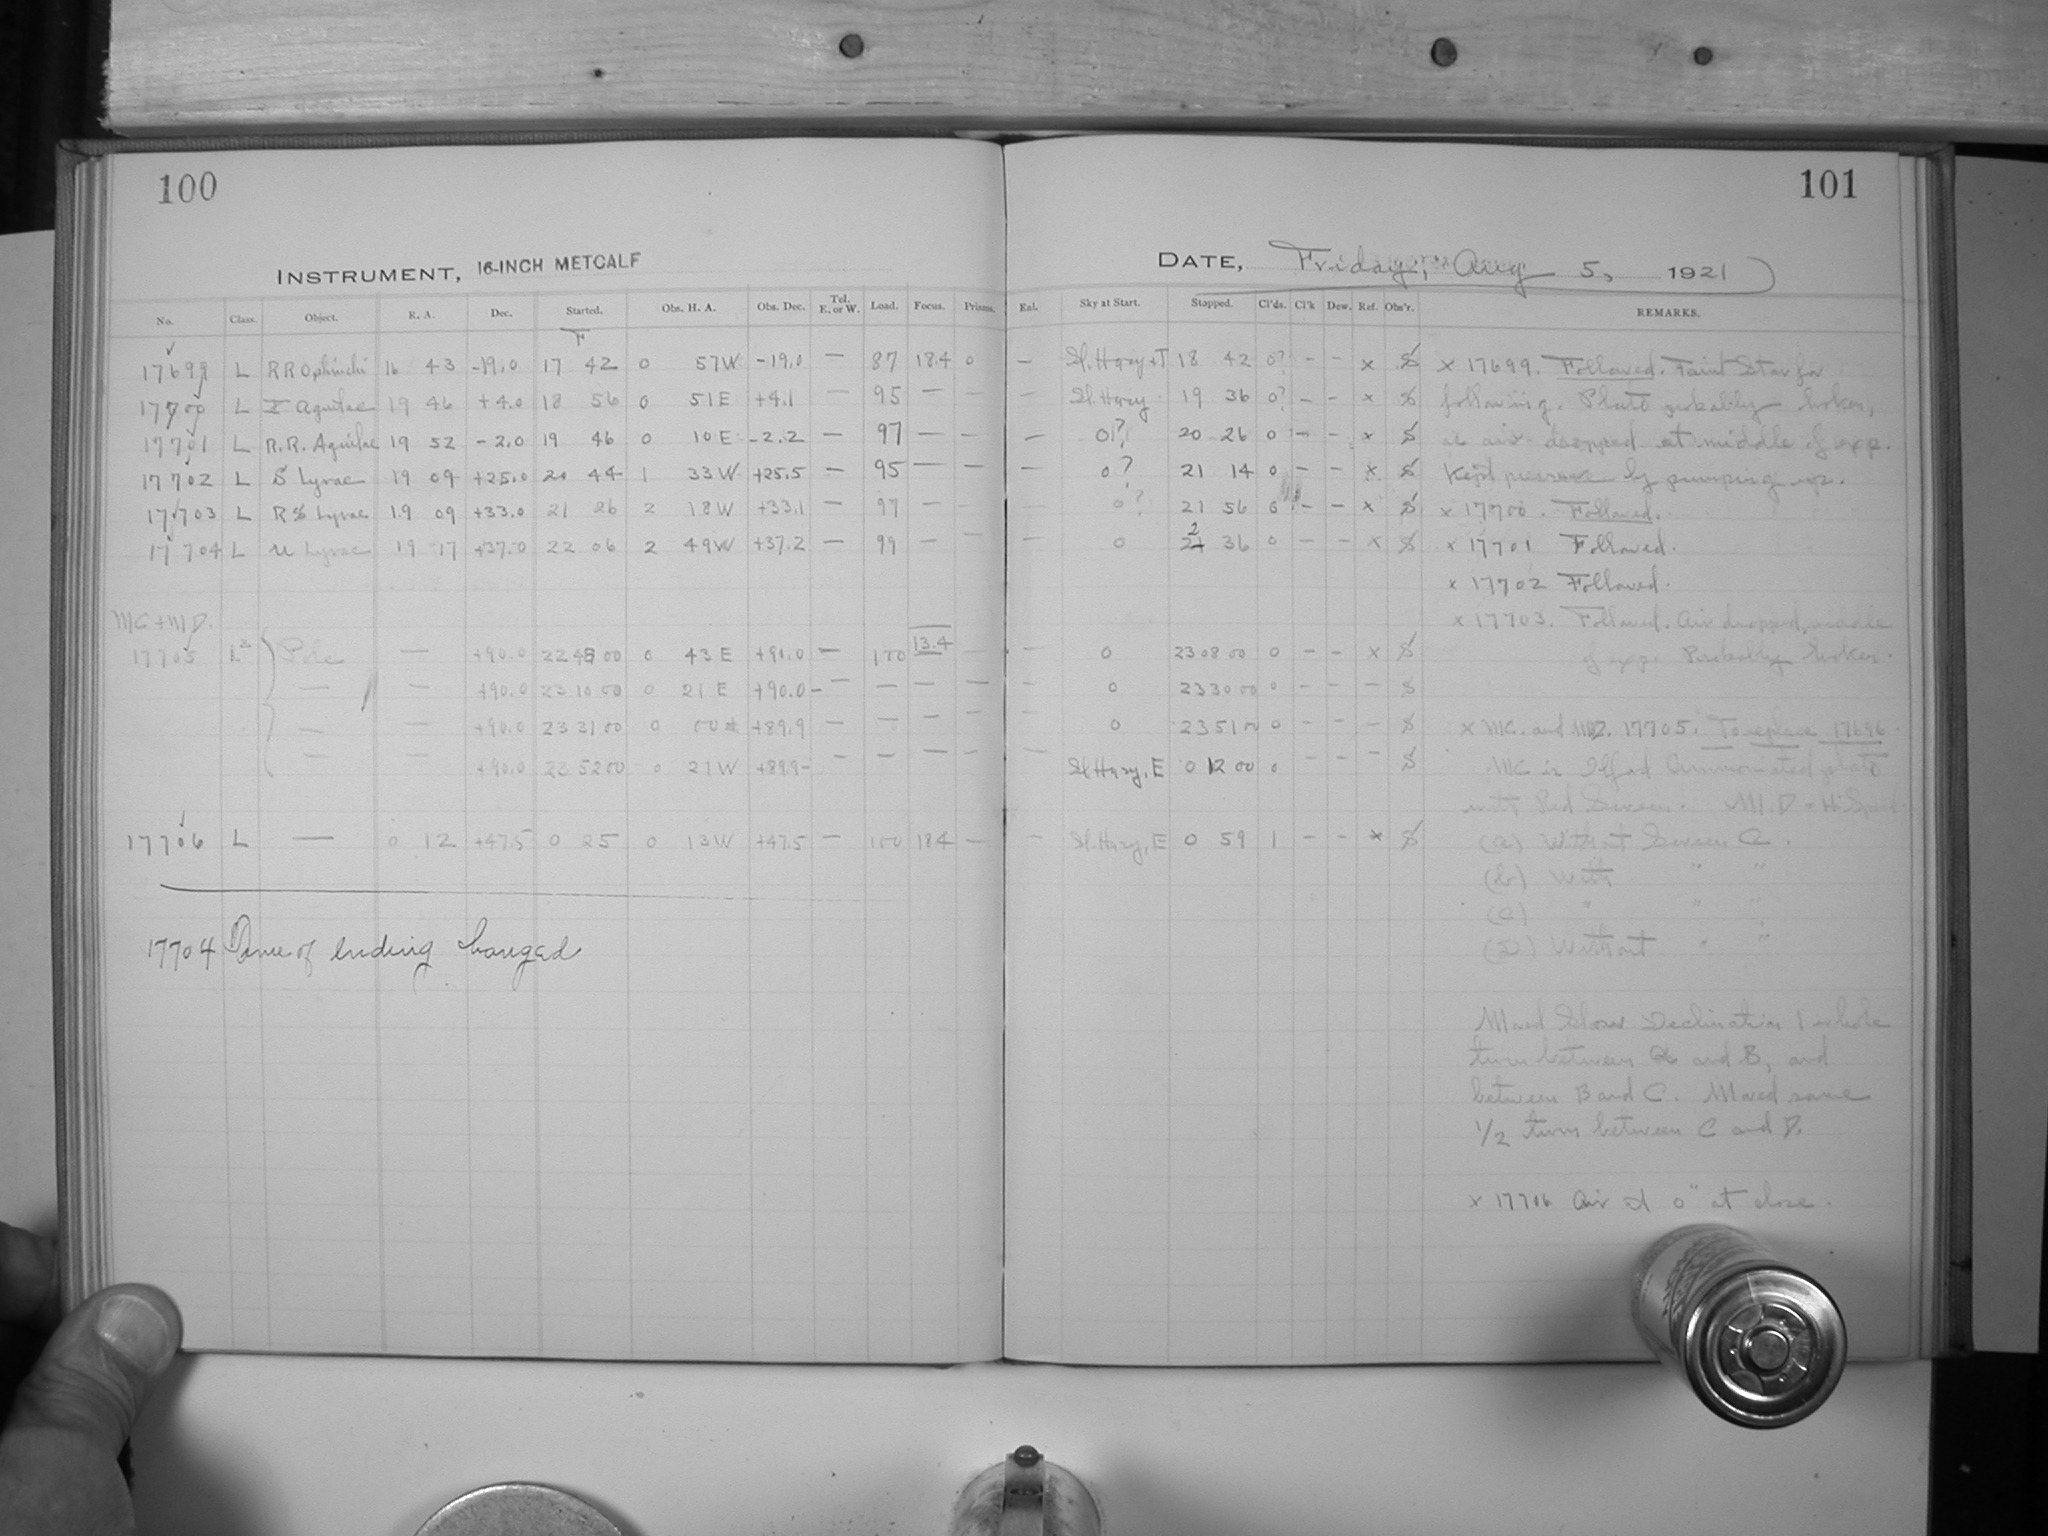 100
101
INSTRUMENT, 16-INCH METCALF
DATE, Friday, Aug 5, 1921
No. Class. Object. R. A. Dec. Started. Obs. H. A. Obs. Dec. Tel. E. or W. Load. Focus. Prisms. Enl. Sky at Start. Stopped. Cl'ds. Cl'k Dew. Ref. Obs'r. REMARKS.
17699 L RR Ophiuchi 16 43 -19.0 17 42 0 57W -19.0 — 87 18.4 0 — Sl. Hazy+T 18 42 0? — — x S x 17699. Followed. Faint Star for
17700 L X Aquilae 19 46 +4.0 18 56 0 51E +4.1 — 95 — — Sl. Hazy 19 36 0? — — x S following. Plate probably broken,
17701 L R.R. Aquilae 19 52 -2.0 19 46 0 10E -2.2 — 97 — — — 0!? 20 26 0 — — x S as air dropped at middle of exp.
17702 L S Lyrae 19 09 +25.0 20 44 1 33W +25.5 — 95 — — — 0? 21 14 0 — — x S Kept pressure by pumping up.
17703 L RS Lyrae 19 09 +33.0 21 26 2 18W +33.1 — 97 — — — 0? 21 56 0 — — x S x 17700. Followed.
17704 L U Lyrae 19 17 +37.0 22 06 2 49W +37.2 — 99 — — — 0 22 36 0 — — x S x 17701 Followed.
x 17702 Followed.
MC+MD. x 17703. Followed. Air dropped, middle
17705 L Pole — +90.0 22 48 00 0 43 E +90.0 — 100 13.4 — — 0 23 08 00 0 — — x S of exp. Probably broken.
— — +90.0 23 10 00 0 21 E +90.0 — — — — — 0 23 30 00 0 — — — S
— — +90.0 23 31 00 0 00 +89.9 — — — — — 0 23 51 00 0 — — — S x MC. and MD. 17705. To replace 17696.
— — +90.0 23 52 00 0 21W +89.9 — — — — — Sl Hazy, E 0 12 00 0 — — — S MC is Ilford Ammoniated plate
with Red Screen. M.D = Hi Speed.
17706 L — 0 12 +47.5 0 25 0 13W +47.5 — 100 18.4 — — Sl. Hazy, E 0 59 1 — — x S (a) Without Screen C.
(b) With " "
(c) " " "
17704 Time of ending changed (D) Without " "
Moved Slow Declination 1 whole
turn between A and B, and
between B and C. Moved same
1/2 turn between C and D.
x 17706 Air at 0" at close.